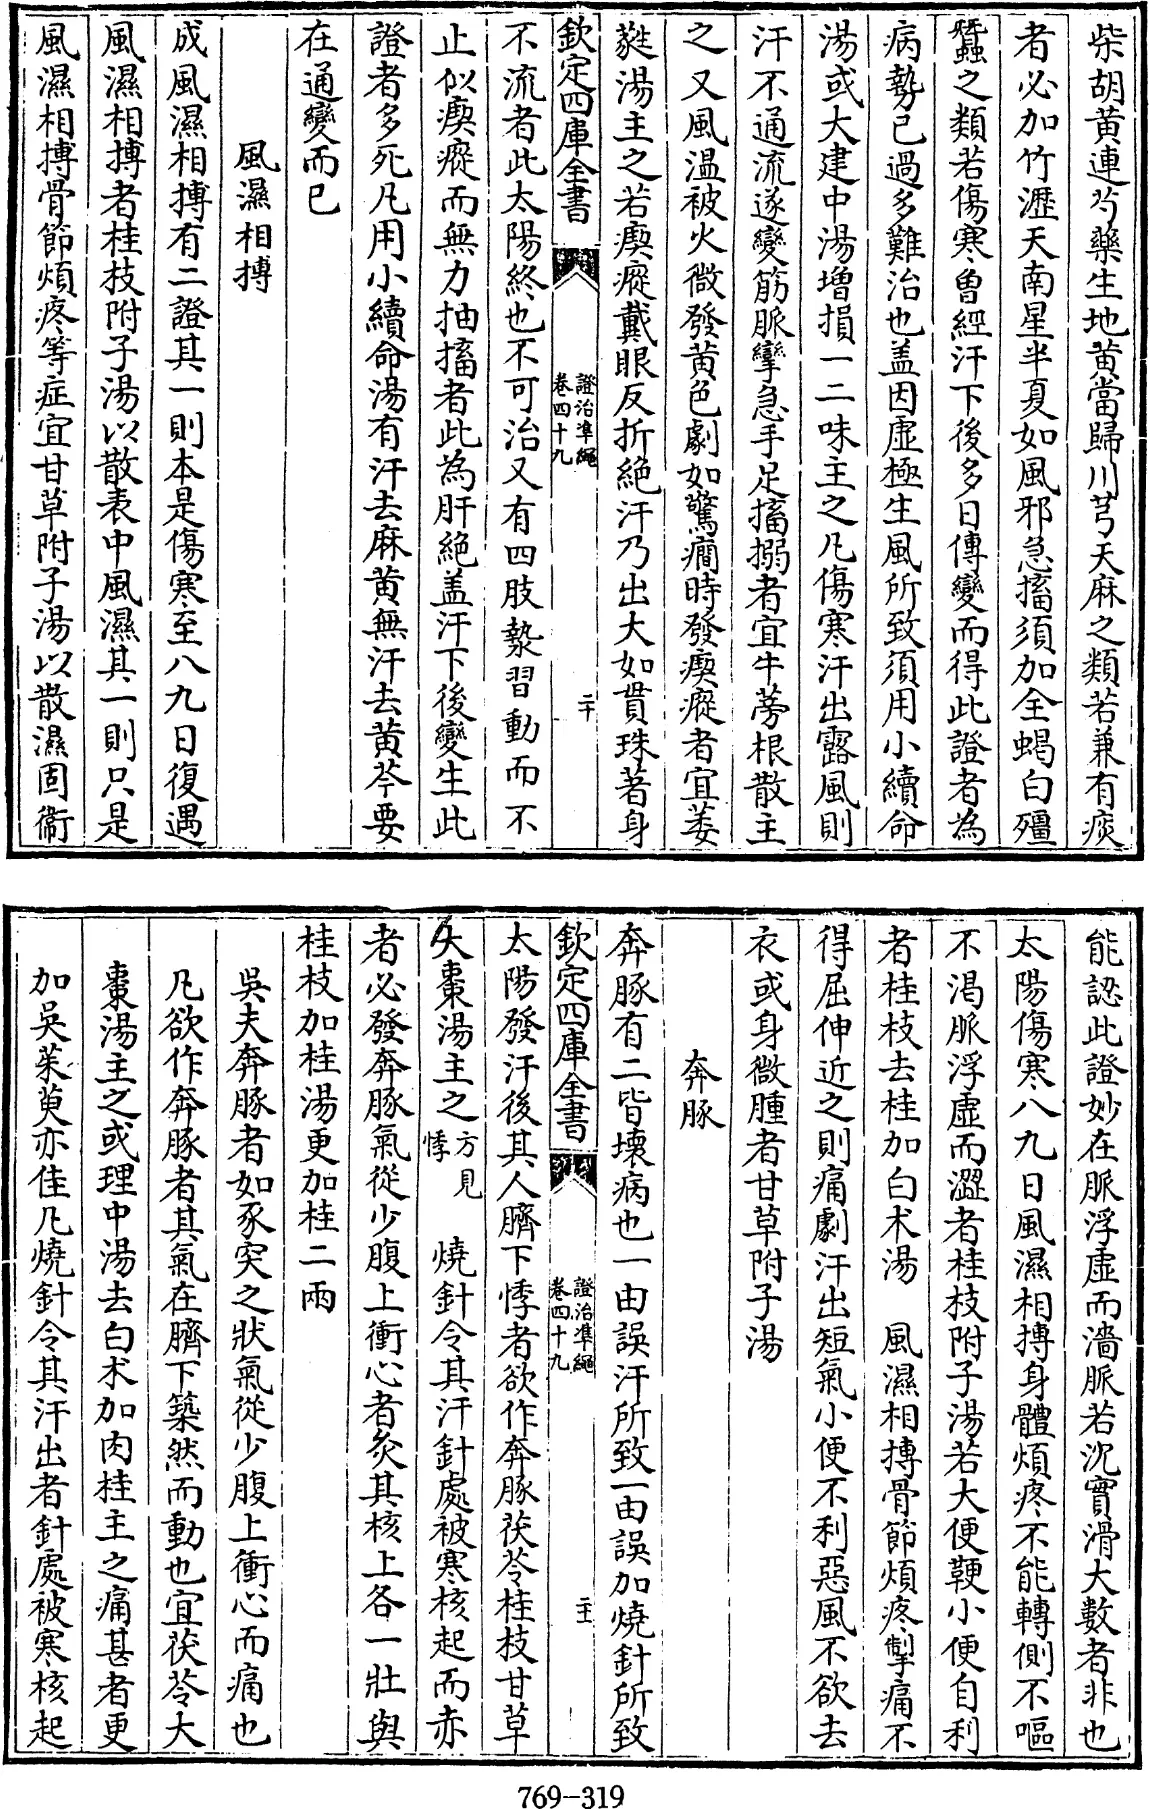 柴胡黄連芍藥生地黄當歸川芎天麻之類若兼有痰
者必加竹瀝天南星半夏如風邪急搐須加全蝎白殭
蠶之類若傷寒曾經汗下後多日傳變而得此證者為
病勢已過多難治也盖因虛極生風所致須用小續命
湯或大建中湯增損一二味主之凡傷寒汗出露風則
汗不通流遂變筋脈攣急手足搐搦者宜牛蒡根散主
之又風温被火微發黄色劇如驚癇時發瘈瘲者宜萎
蕤湯主之若瘈瘲戴眼反折絶汗乃出大如貫珠著身
欽定四庫全書
證治準繩
卷四十九
二十
不流者此太陽終也不可治又有四肢漐習動而不
止似瘈瘲而無力抽搐者此為肝絶盖汗下後變生此
證者多死凡用小續命湯有汗去麻黄無汗去黄芩要
在通變而已
風濕相搏
成風濕相搏有二證其一則本是傷寒至八九日復遇
風濕相搏者桂枝附子湯以散表中風濕其一則只是
風濕相搏骨節煩疼等症宜甘草附子湯以散濕固衞
能認此證妙在脈浮虛而濇脈若沉實滑大數者非也
太陽傷寒八九日風濕相搏身體煩疼不能轉側不嘔
不渴脈浮虛而澀者桂枝附子湯若大便鞕小便自利
者桂枝去桂加白术湯 風濕相搏骨節煩疼掣痛不
得屈伸近之則痛劇汗出短氣小便不利惡風不欲去
衣或身微腫者甘草附子湯
奔豚
奔豚有二皆壞病也一由誤汗所致一由誤加燒針所致
欽定四庫全書
證治準繩
卷四十九
二十一
太陽發汗後其人臍下悸者欲作奔豚茯苓桂枝甘草
大棗湯主之方見悸 燒針令其汗針處被寒核起而赤
者必發奔豚氣從少腹上衝心者灸其核上各一壯與
桂枝加桂湯更加桂二兩
吳夫奔豚者如豕突之狀氣從少腹上衝心而痛也
凡欲作奔豚者其氣在臍下築然而動也宜茯苓大
棗湯主之或理中湯去白术加肉桂主之痛甚者更
加吳茱萸亦佳凡燒針令其汗出者針處被寒核起
769-319